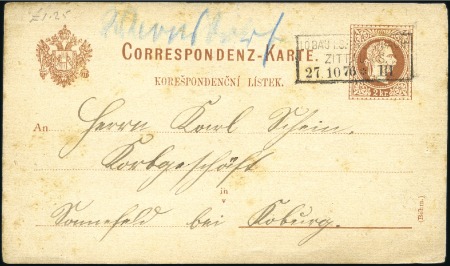 £1.25
CORRESPONDENZ-KARTE.
KOREŠPONDENČNÍ LÍSTEK.
ZITT
27 10 76
2 KR
An
Herrn Karl Schein,
Korbgeschäft
in
v
Sonnefeld bei Koburg.
(Böhm.)